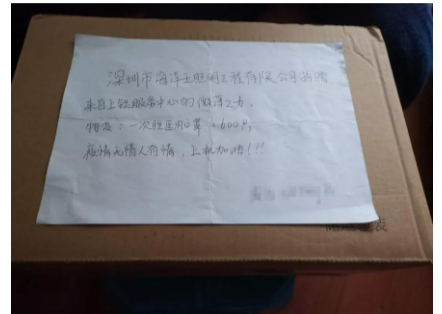 深圳市海洋王照明工程有限公司捐赠
来自上铁服务中心的微薄之力,
物资:一次性医用口罩:600只,
疫情无情人有情,上机加油!!!